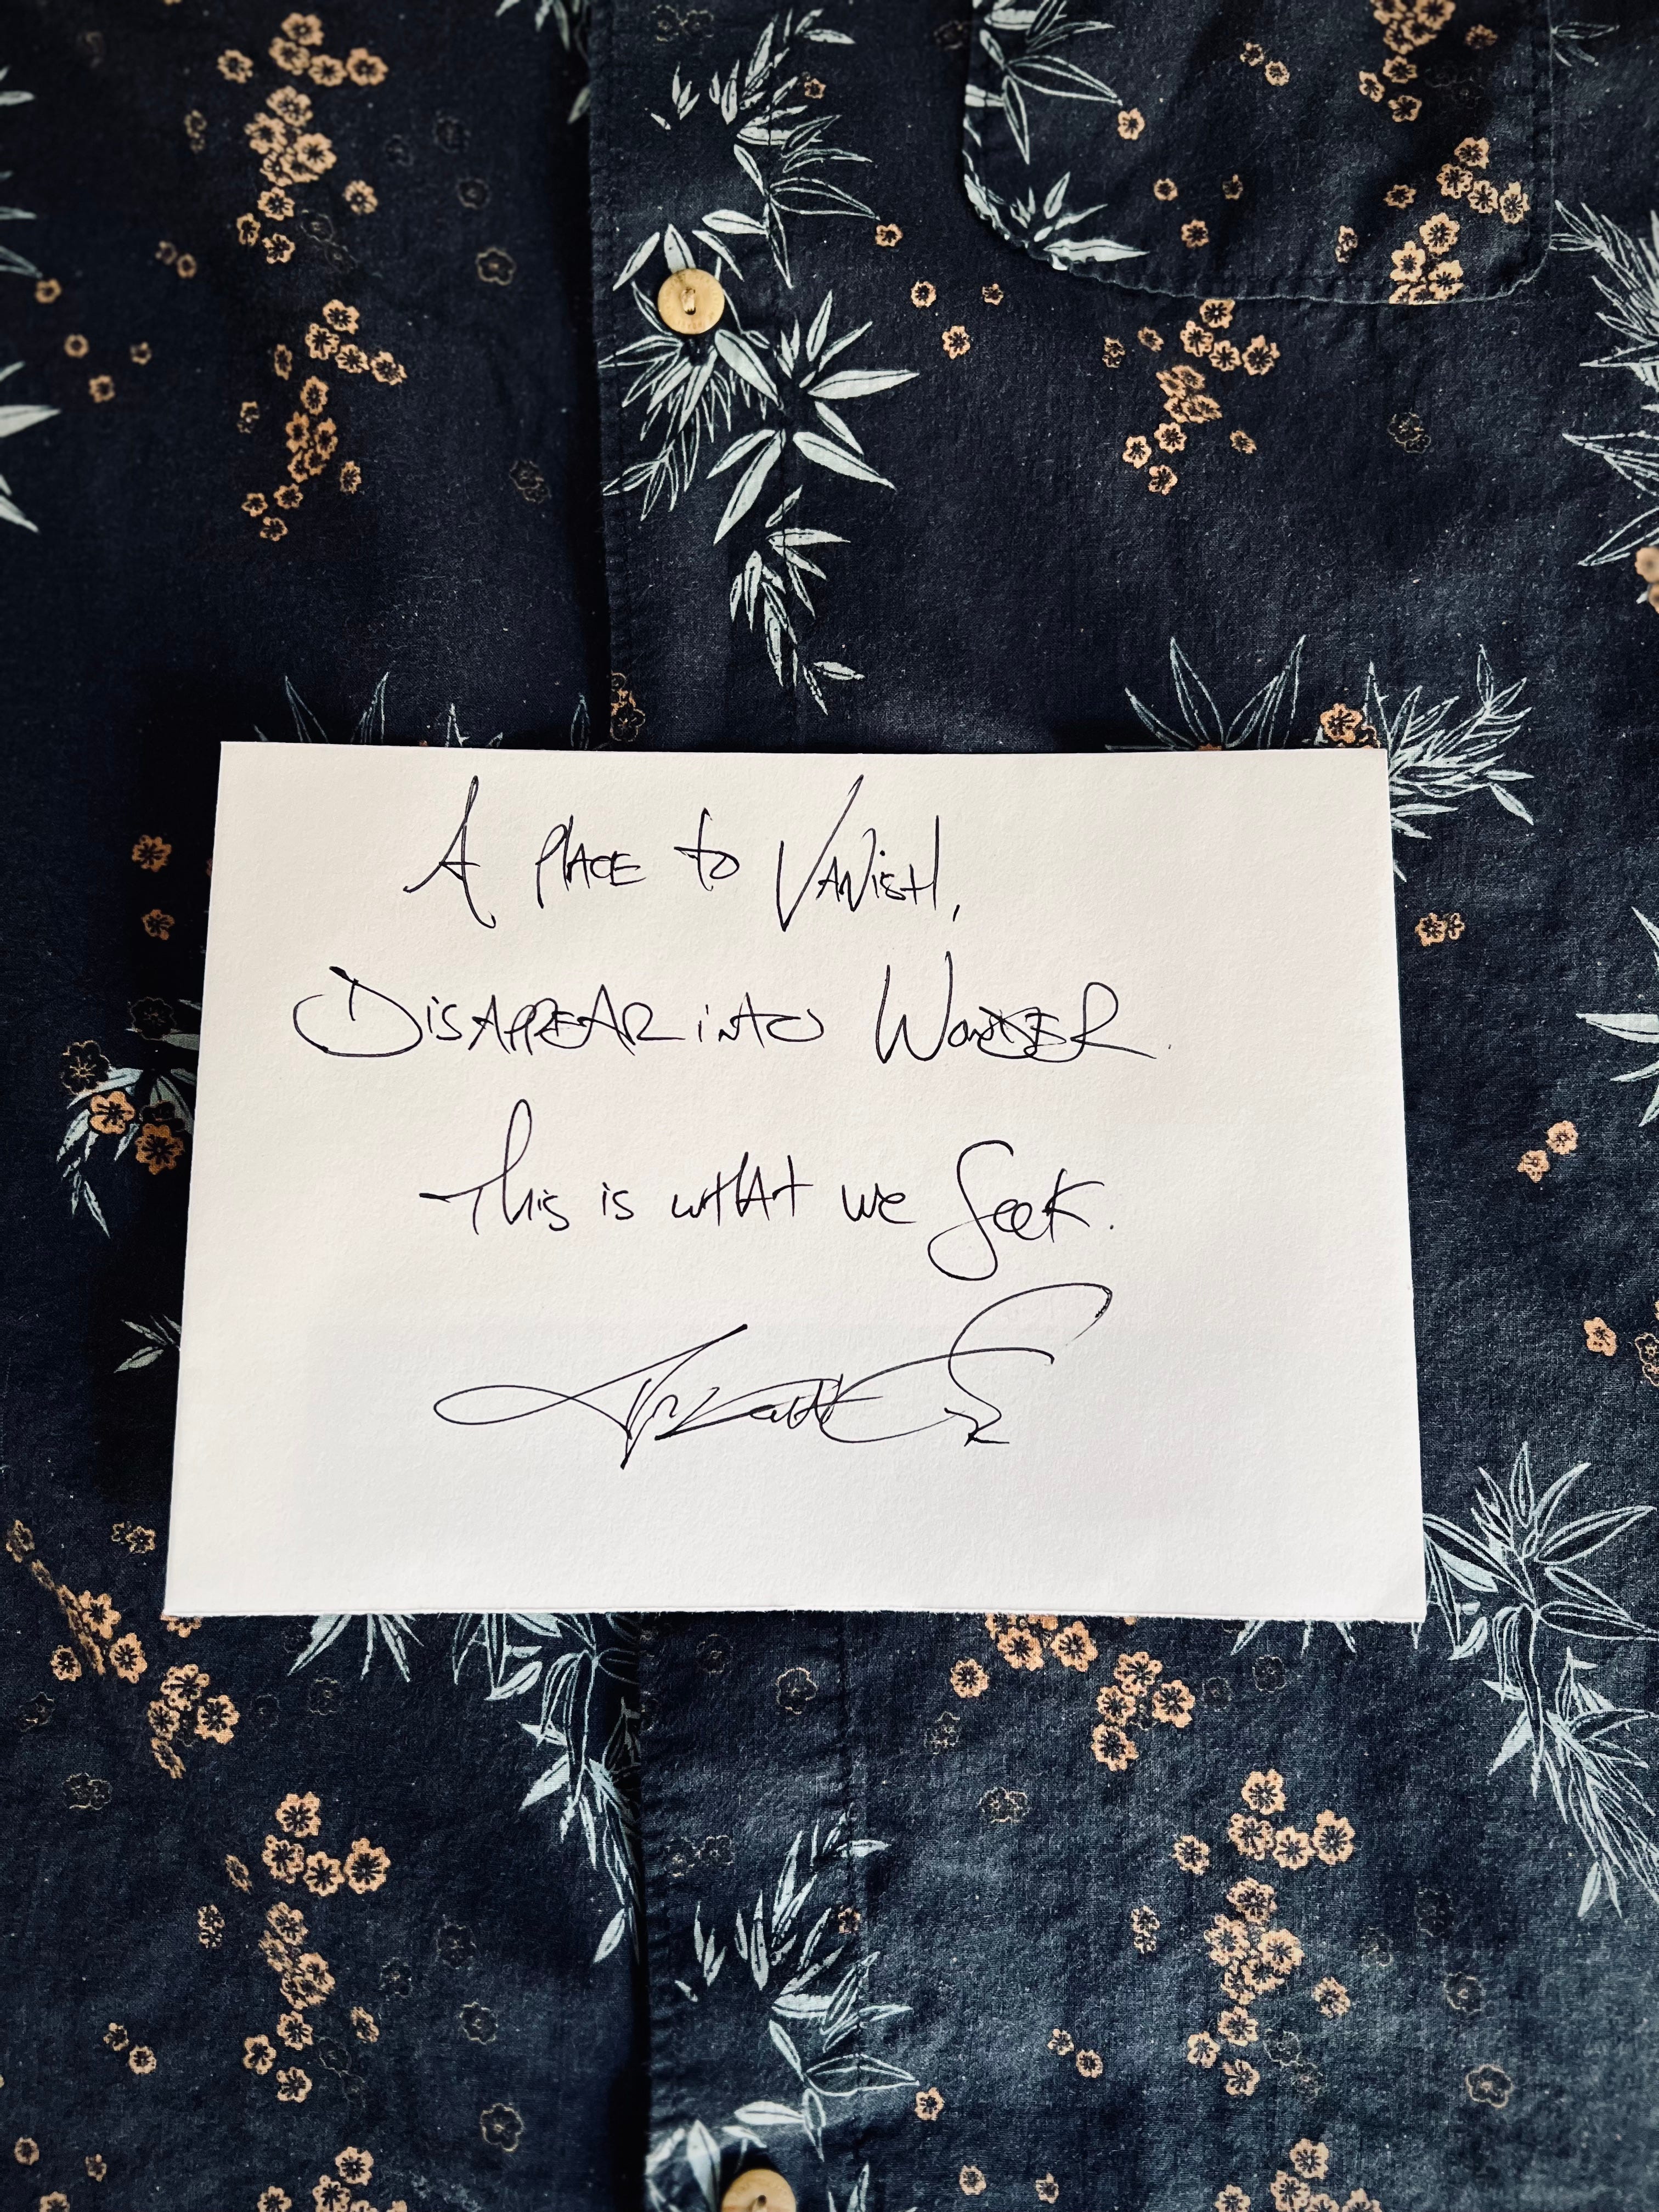 A PLACE to VANisH,
DisAPPEAR into WONDER.
This is wHAt we Seek.